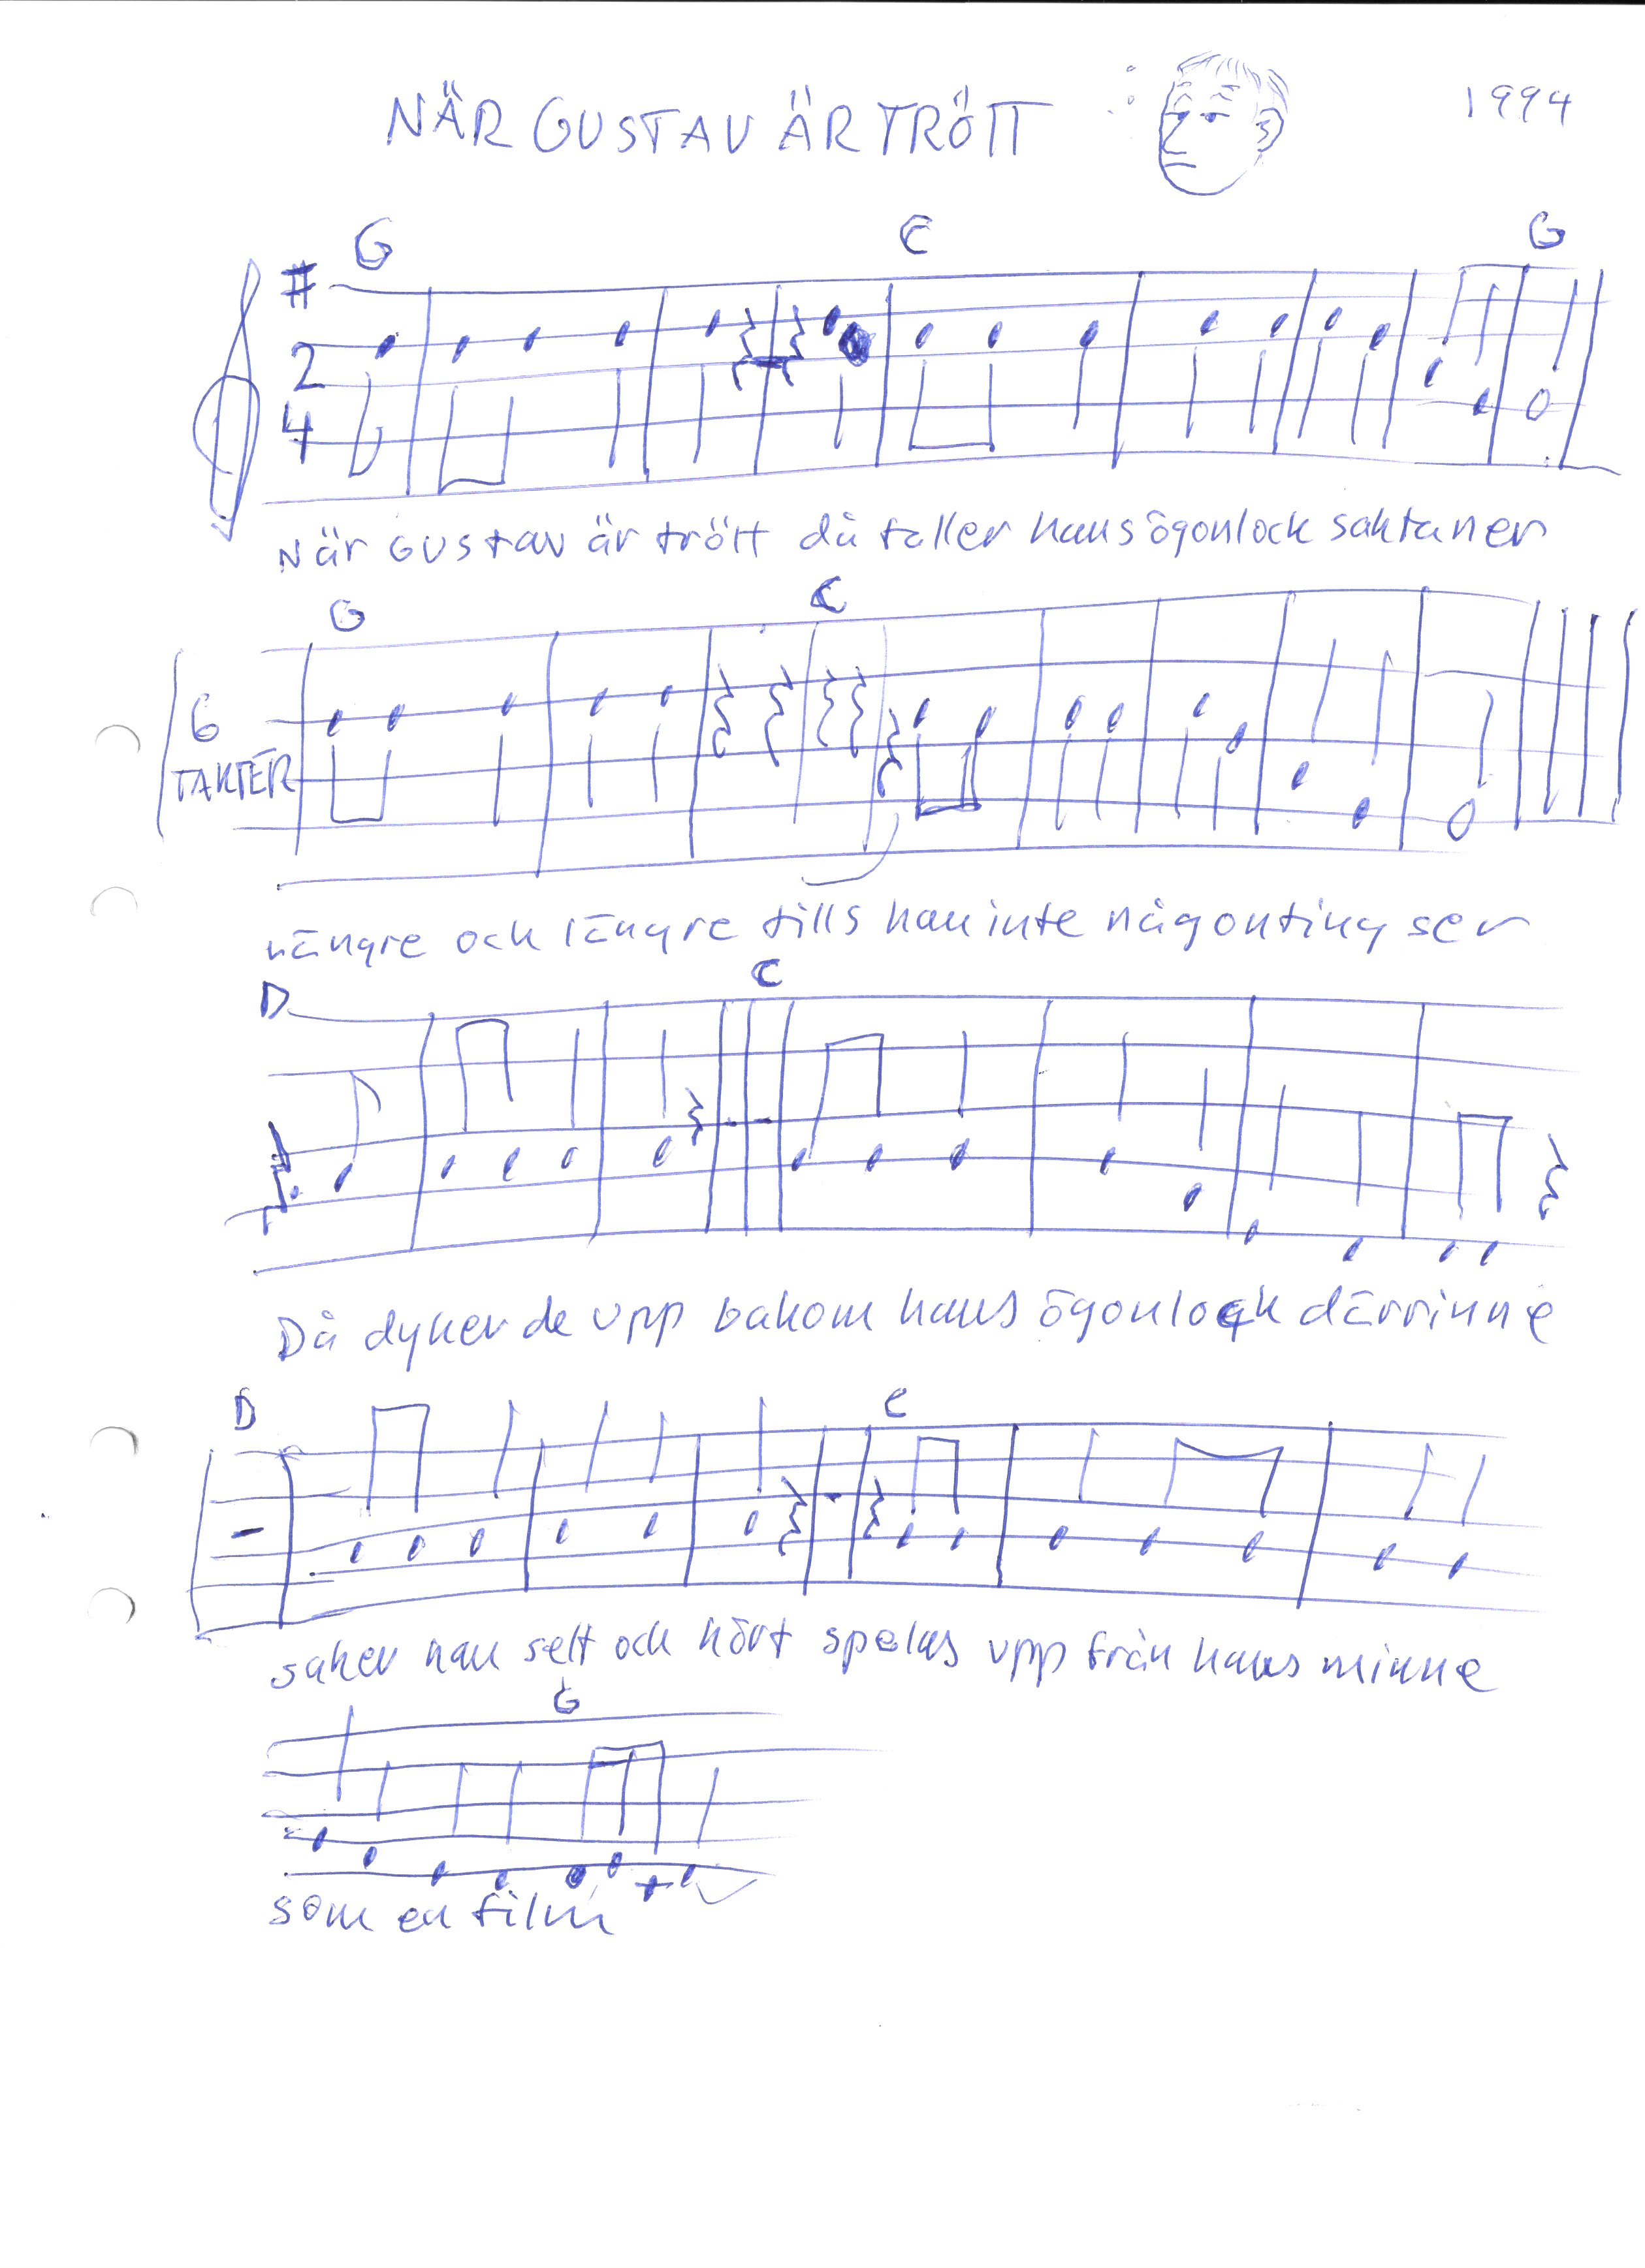 NÄR GUSTAV ÄR TRÖTT 1994
G C G
2
4
När GUStav är trött då faller hans ögonlock sakta ner
G C
6
TAKTER
längre och längre tills han inte någonting ser
D C
Då dyker de upp bakom hans ögonlock därrinne
D C
saker han sett och hört spelas upp från hans minne
G
som en film